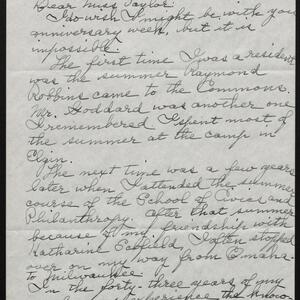 Dear Miss Taylor:
I do wish I might be with you
anniversary week, but it is
impossible.
The first time I was a resident
was the summer Raymond
Robbins came to the Commons.
Mr. Goddard was another one
I remembered. I spent most of
the summer at the camp in
Elgin.
The next time was a few years
later when I attended the summer
course of the School of Civics and
Philanthropy. After that summer
because of my friendship with
Katharine Scofield, I often stopped
over on my way from Omaha
to Milwaukee.
In the forty-three years of my
experience the know